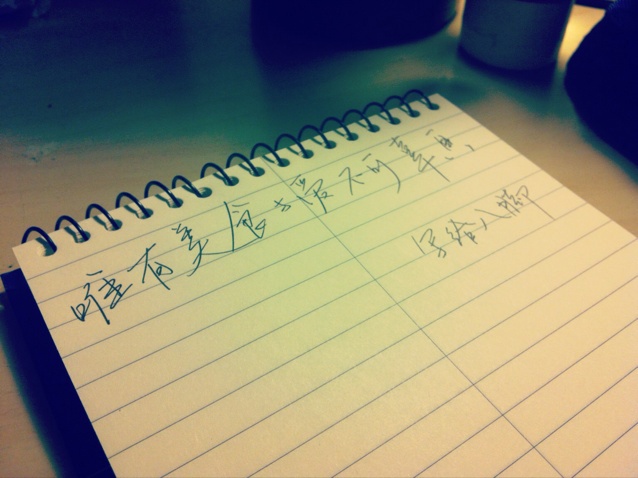 唯有美食与爱不可辜负，
写给入喉